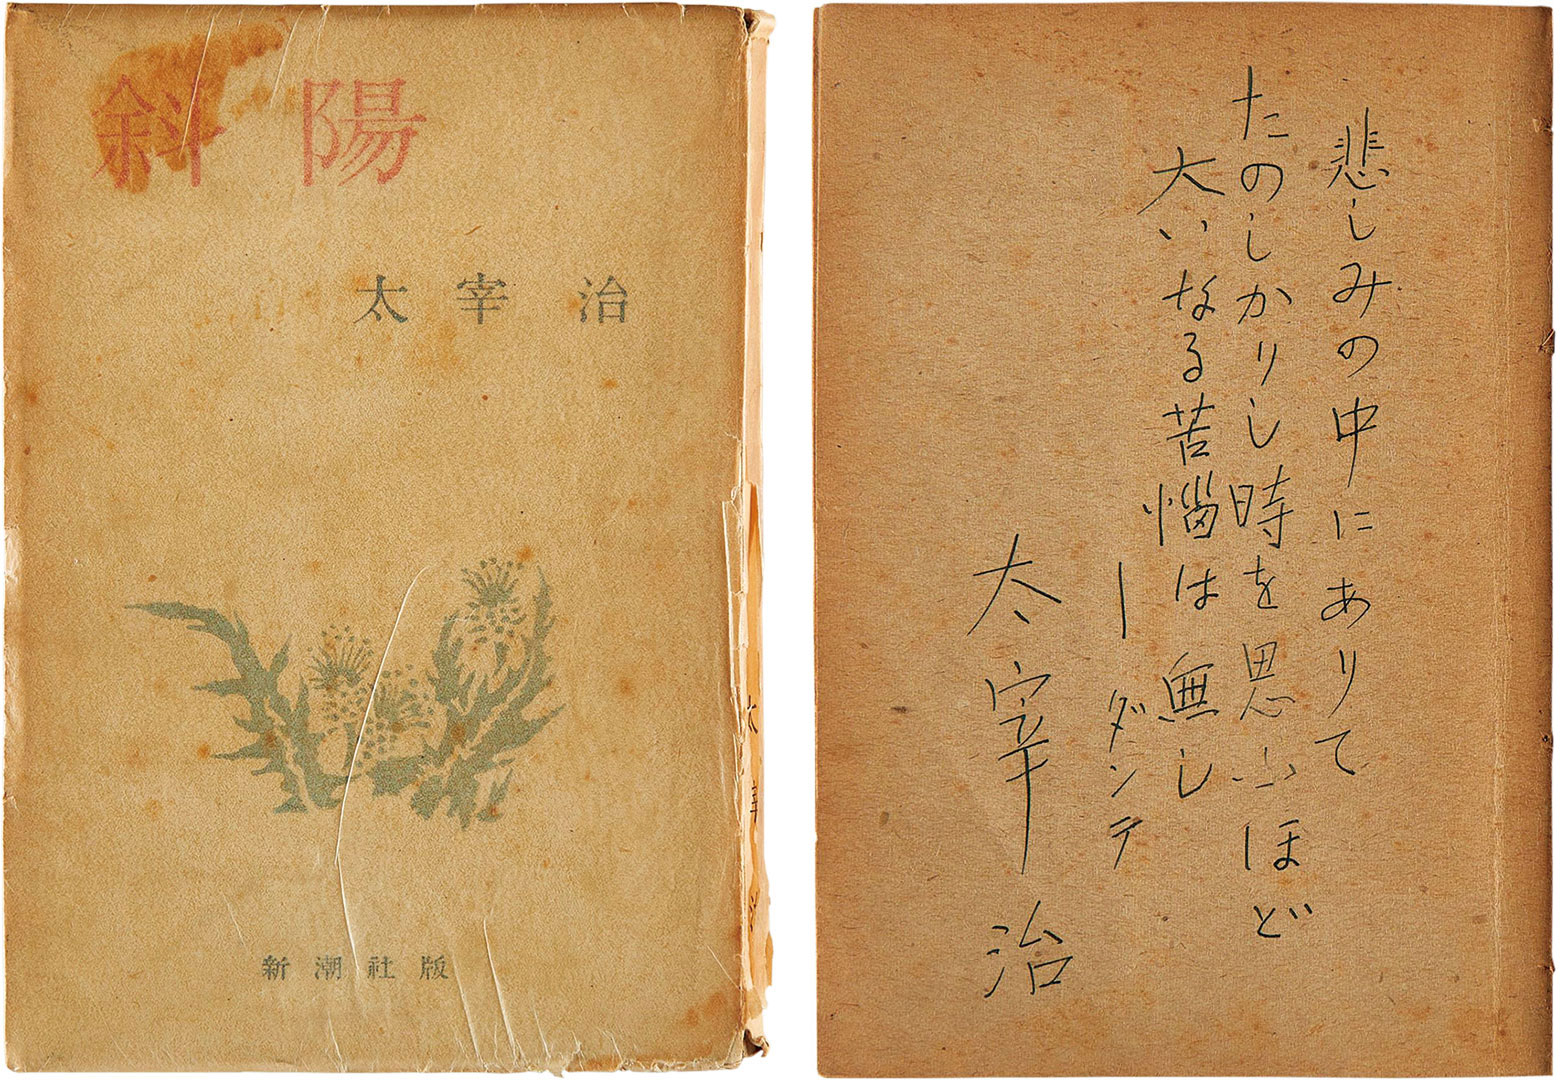 斜陽
太宰治
新潮社版
悲しみの中にありて
たのしかりし時を思ふほど
大いなる苦惱は無し
―ダンテ
太宰治